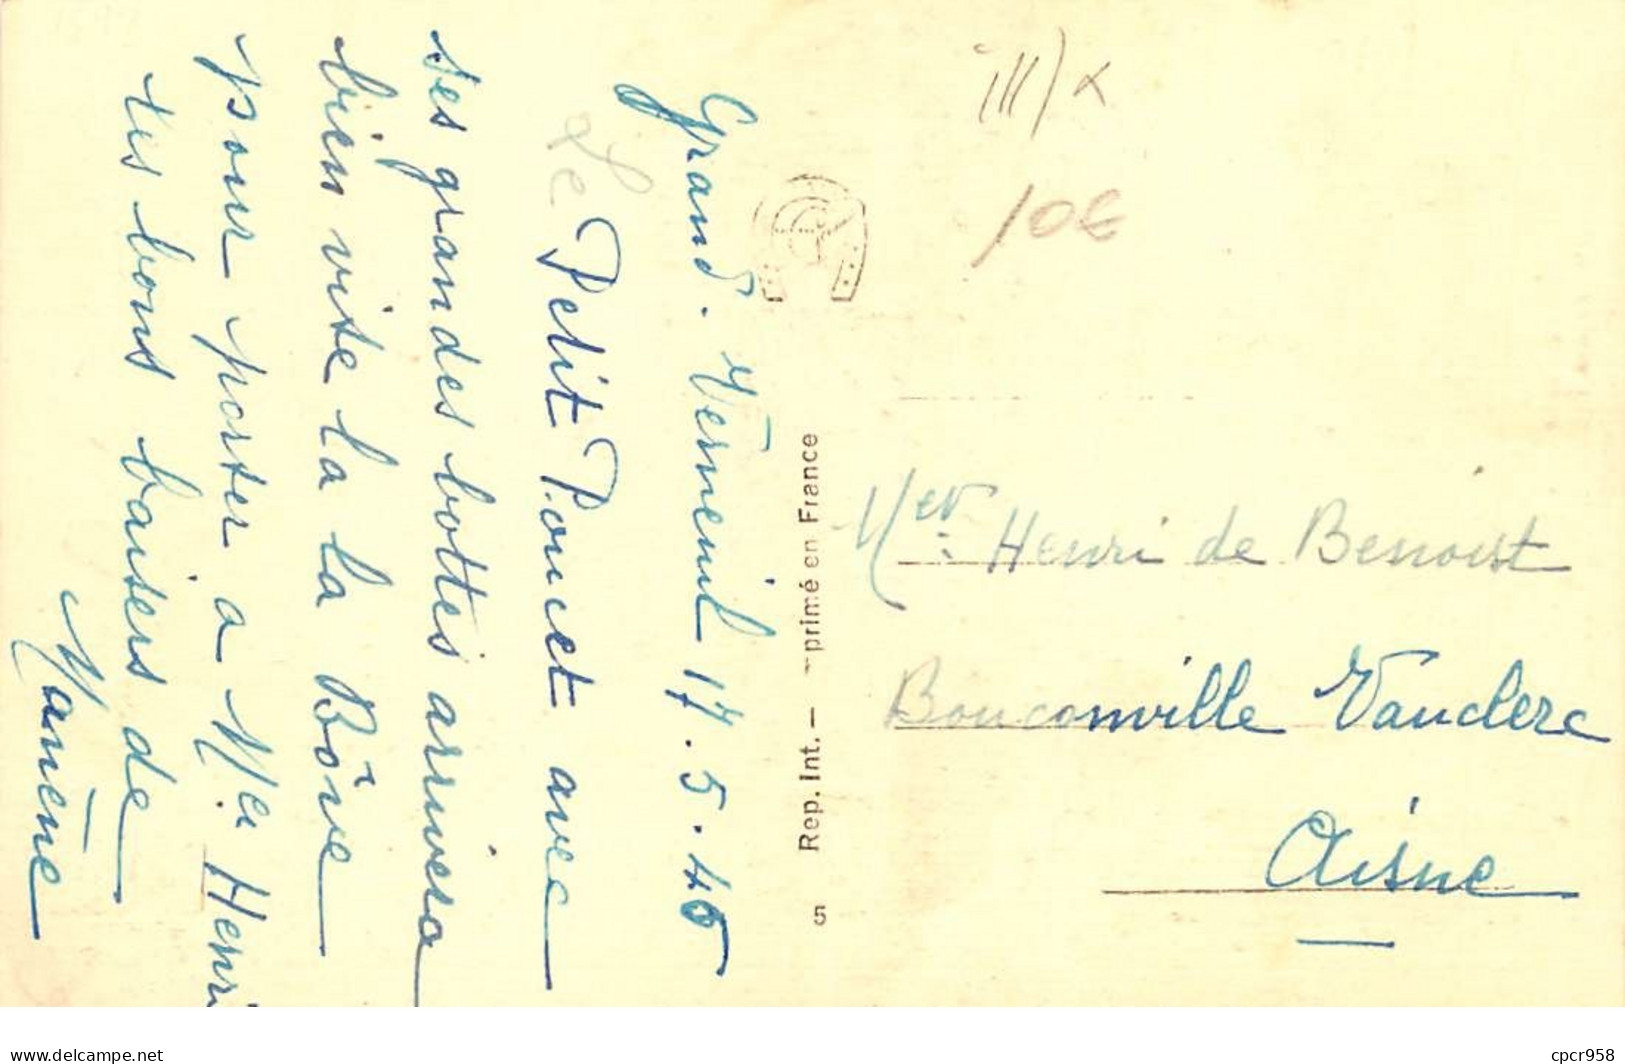 Grand. Verneuil 17.5.45
Le Petit Poucet avec
ses grandes bottes arrivera
bien vite la la Bôve
pour porter a Mr Henri
tes bons baisers de
Manène
Rep. Int. — primé en France
5
III/X
10€
Mer. Henri de Benoist
Bouconville Vauclerc
Aisne
cpcr958